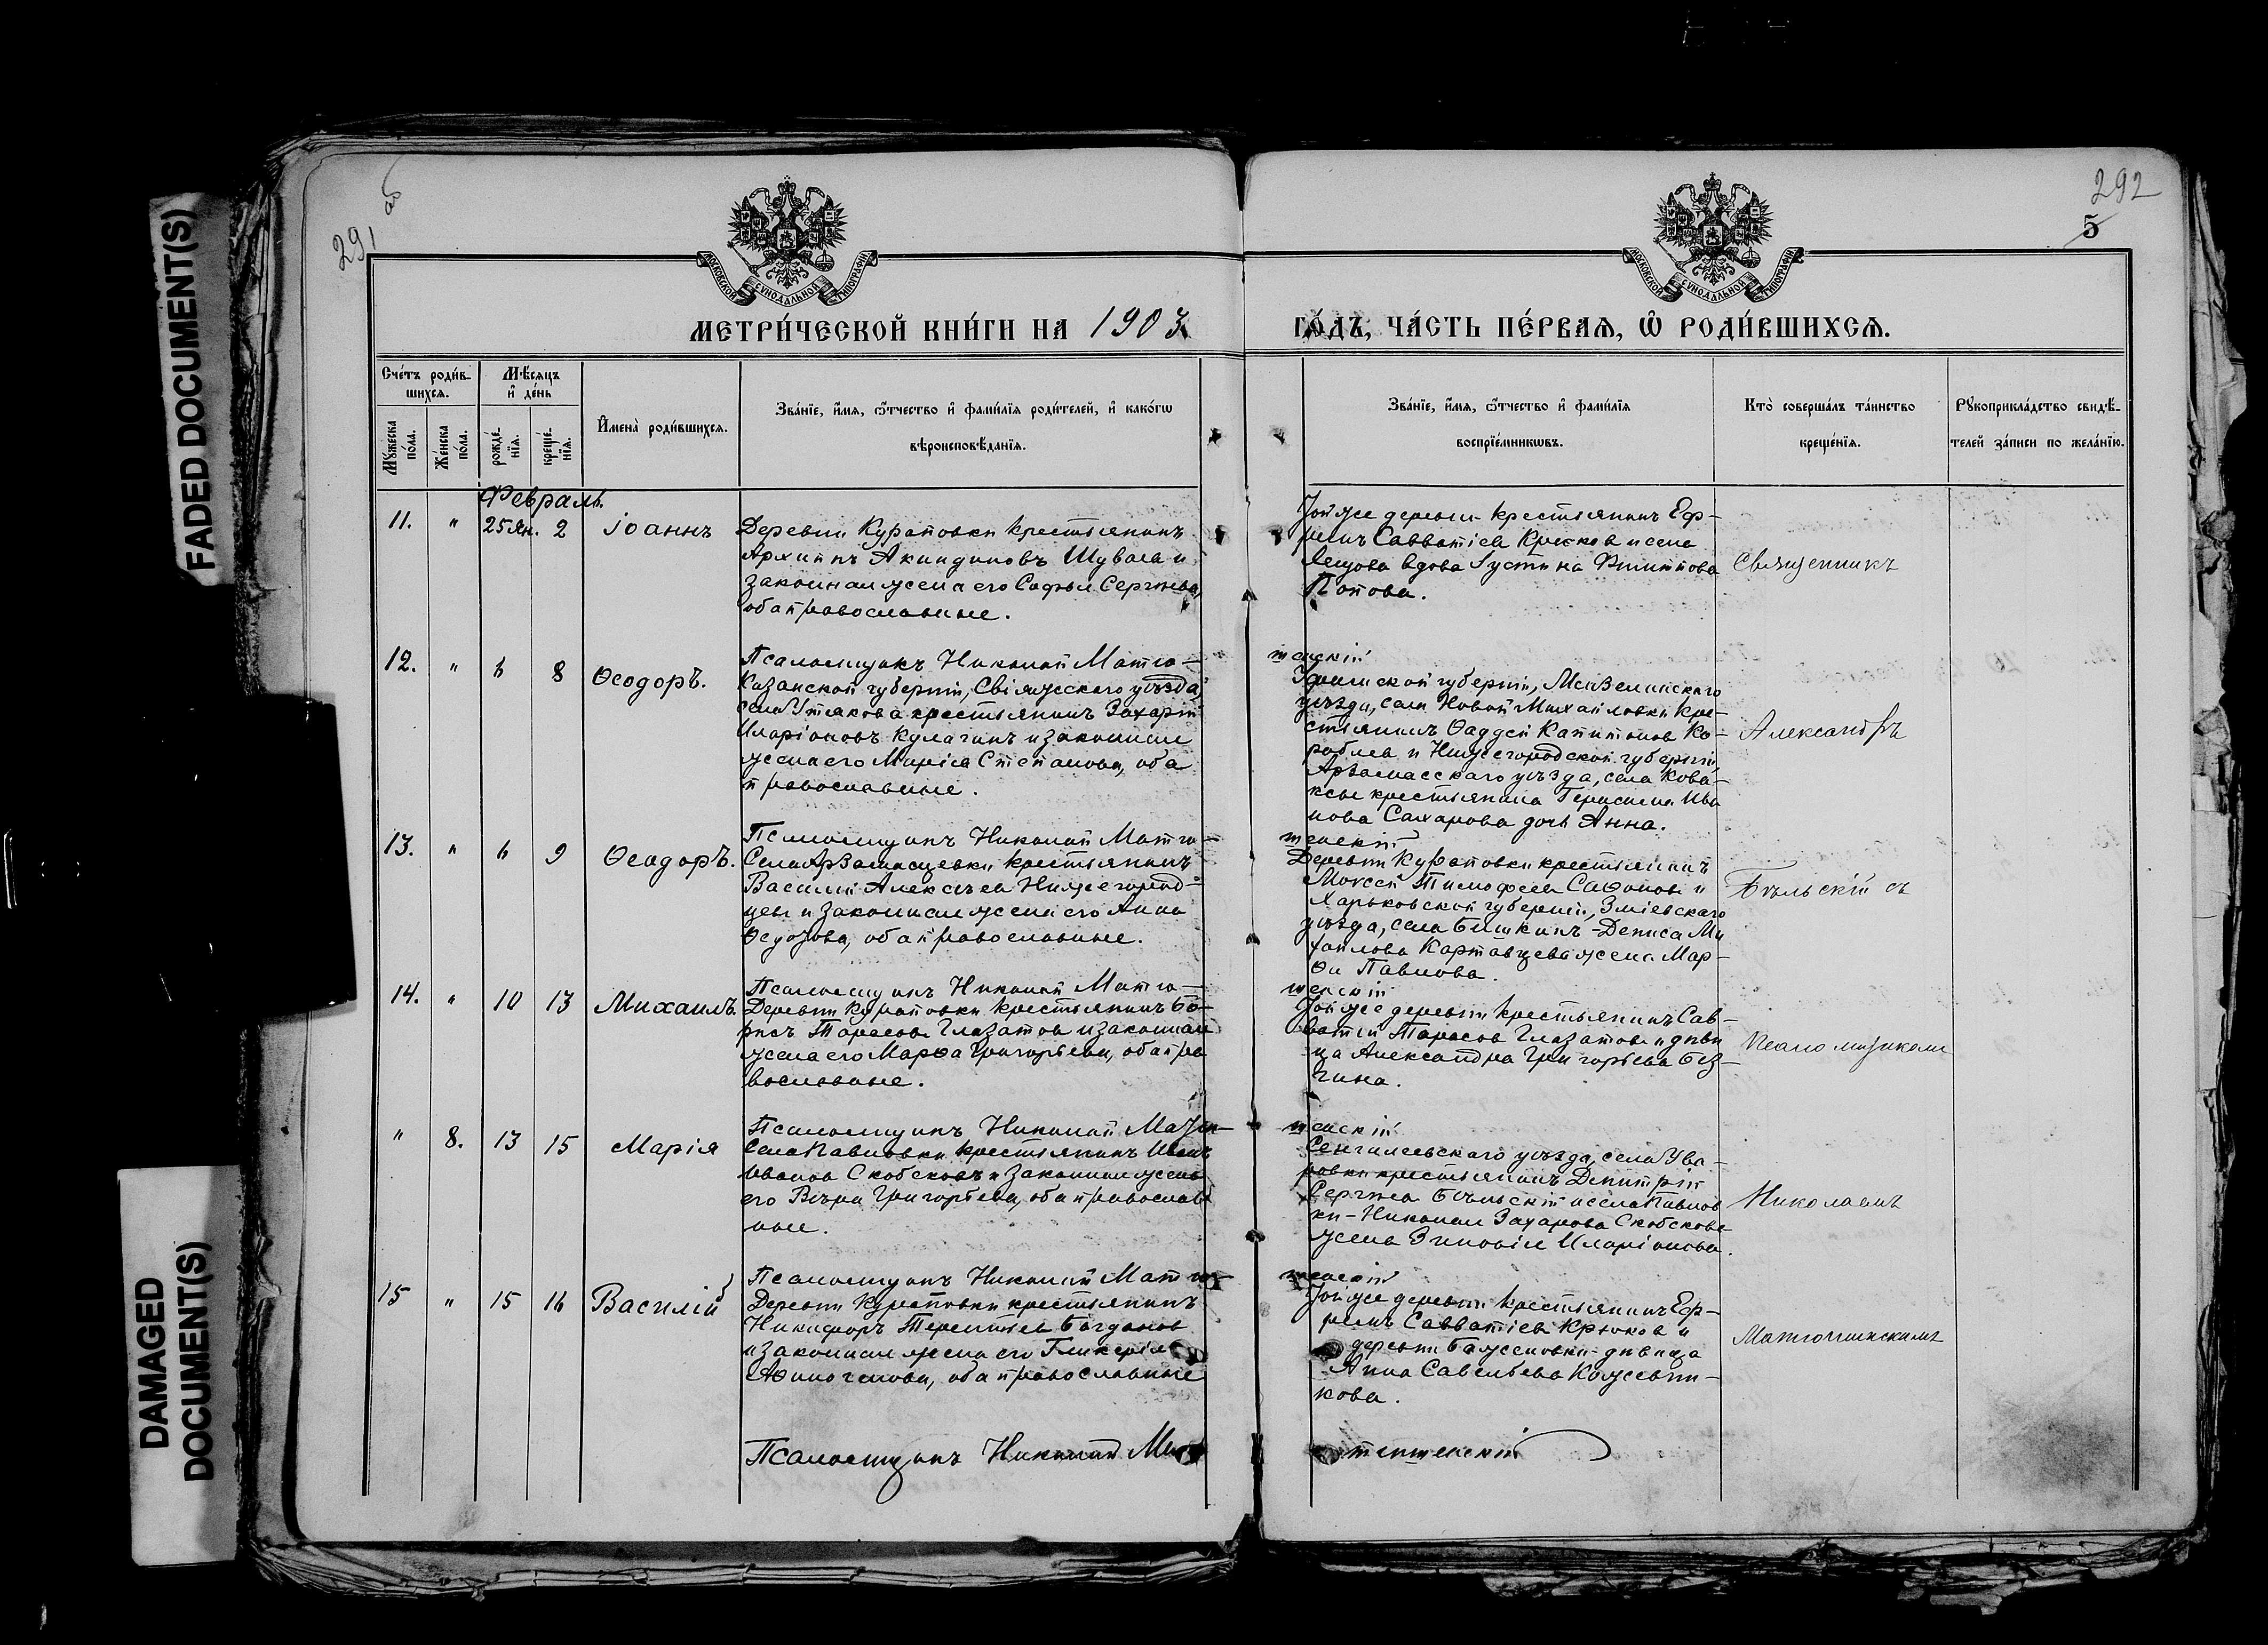 FADED DOCUMENT(S)
DAMAGED
DOCUMENT(S)
291 об
292
5
МОСКОВСКОЙ СѴНОДАЛЬНОЙ ТИПОГРАФІИ
МОСКОВСКОЙ СѴНОДАЛЬНОЙ ТИПОГРАФІИ
МЕТРИ́ЧЕСКОЙ КНИ́ГИ НА 1903
ГО́ДЪ, ЧА́СТЬ ПЕ́РВАѦ, Ѡ҆ РОДИ́ВШИХСѦ.
Сче́тъ роди́в-
шихсѧ.
Мꙋ́жеска
по́ла.
Же́нска
по́ла.
Мѣ́сѧцъ
и҆ де́нь
рожде́-
нїѧ.
креще́-
нїѧ.
И҆мена̀ роди́вшихсѧ.
Зва́нїе, и҆́мѧ, ѻ҆́тчество и҆ фами́лїѧ роди́телей, и҆ како́гѡ
вѣроисповѣ́данїѧ.
Зва́нїе, и҆́мѧ, ѻ҆́тчество и҆ фами́лїѧ
воспрїе́мникѡвъ.
Кто̀ соверша́лъ та́инство
креще́нїѧ.
Рꙋкоприкла́дство свидѣ́-
телей за́писи по жела́нїю.
Февраль.
11. " 25 Ян. 2 Іоаннъ
Деревни Куратовки крестьянинъ
Архиппъ Акиндиновъ Шуваевъ и
законная жена его Софья Сергѣева,
оба православные.
Той же деревни крестьянинъ Еф-
ремъ Савватіевъ Крюковъ и села
вдова Іустина Филиппова
Попова.
Священникъ
12. " 6 8 Ѳеодоръ.
Псаломщикъ Николай Матю-
шенскій
Казанской губерніи, Свіяжскаго уѣзда,
села Утякова крестьянинъ Захарій
Иларіоновъ Кулагинъ и законная
жена его Марія Степанова, оба
православные.
Уфимской губерніи, Мензелинскаго
уѣзда, села Новой Михайловки кре-
стьянинъ Ѳаддей Капитоновъ Ко-
раблевъ и Нижегородской губерніи,
Арзамасскаго уѣзда, села Кова-
ксы крестьянина Герасима Ива
нова Сахарова дочь Анна.
Александръ
13. " 6 9 Ѳеодоръ.
Псаломщикъ Николай Матю-
шенскій
Села Арзамасцевки крестьянинъ
Василій Алексѣевъ Нижегород-
цевъ и законная жена его Анна
Ѳедорова, оба православные.
Деревни Куратовки крестьянинъ
Моисей Тимофеевъ Саѳоновъ и
Харьковской губерніи, Зміевскаго
уѣзда, села Бишкинъ - Дениса Ми
хайлова Картавцева жена Мар-
ѳа Павлова.
Бѣльскій съ
14. " 10 13 Михаилъ.
Псаломщикъ Николай Матю-
шенскій
Деревни Куратовки крестьянинъ Бо-
рисъ Тарасовъ Глазатовъ и законная
жена его Марѳа Григорьева, оба пра
вославные.
Той же деревни крестьянинъ Сав-
ватій Тарасовъ Глазатовъ и дѣви
ца Александра Григорьева Без-
гина.
псаломщикомъ
" 8. 13 15 Марія
Псаломщикъ Николай Матю-
шенскій
Села Павловки крестьянинъ Иванъ
Ивановъ Скобсковъ и законная жена
его Вѣра Григорьева, оба православ
ные.
Сенгилеевскаго уѣзда, села Ува-
ровки крестьянинъ Димитрій
Сергѣевъ Бѣльскій и села Павлов
ки - Николая Захарова Скобскова
жена Зиновія Иларіонова.
Николаемъ
15 " 15 16 Василій
Псаломщикъ Николай Матю-
шенскій
Деревни Куратовки крестьянинъ
Никифоръ Терентьевъ Богдановъ
и законная жена его Гликерія
Аѳиногенова, оба православные
Той же деревни крестьянинъ Еф-
ремъ Савватіевъ Крюковъ и
деревни Баженовки - дѣвица
Анна Савельева Кожевни-
кова.
Матюшинскимъ
Псаломщикъ Николай Ма
тюшенскій